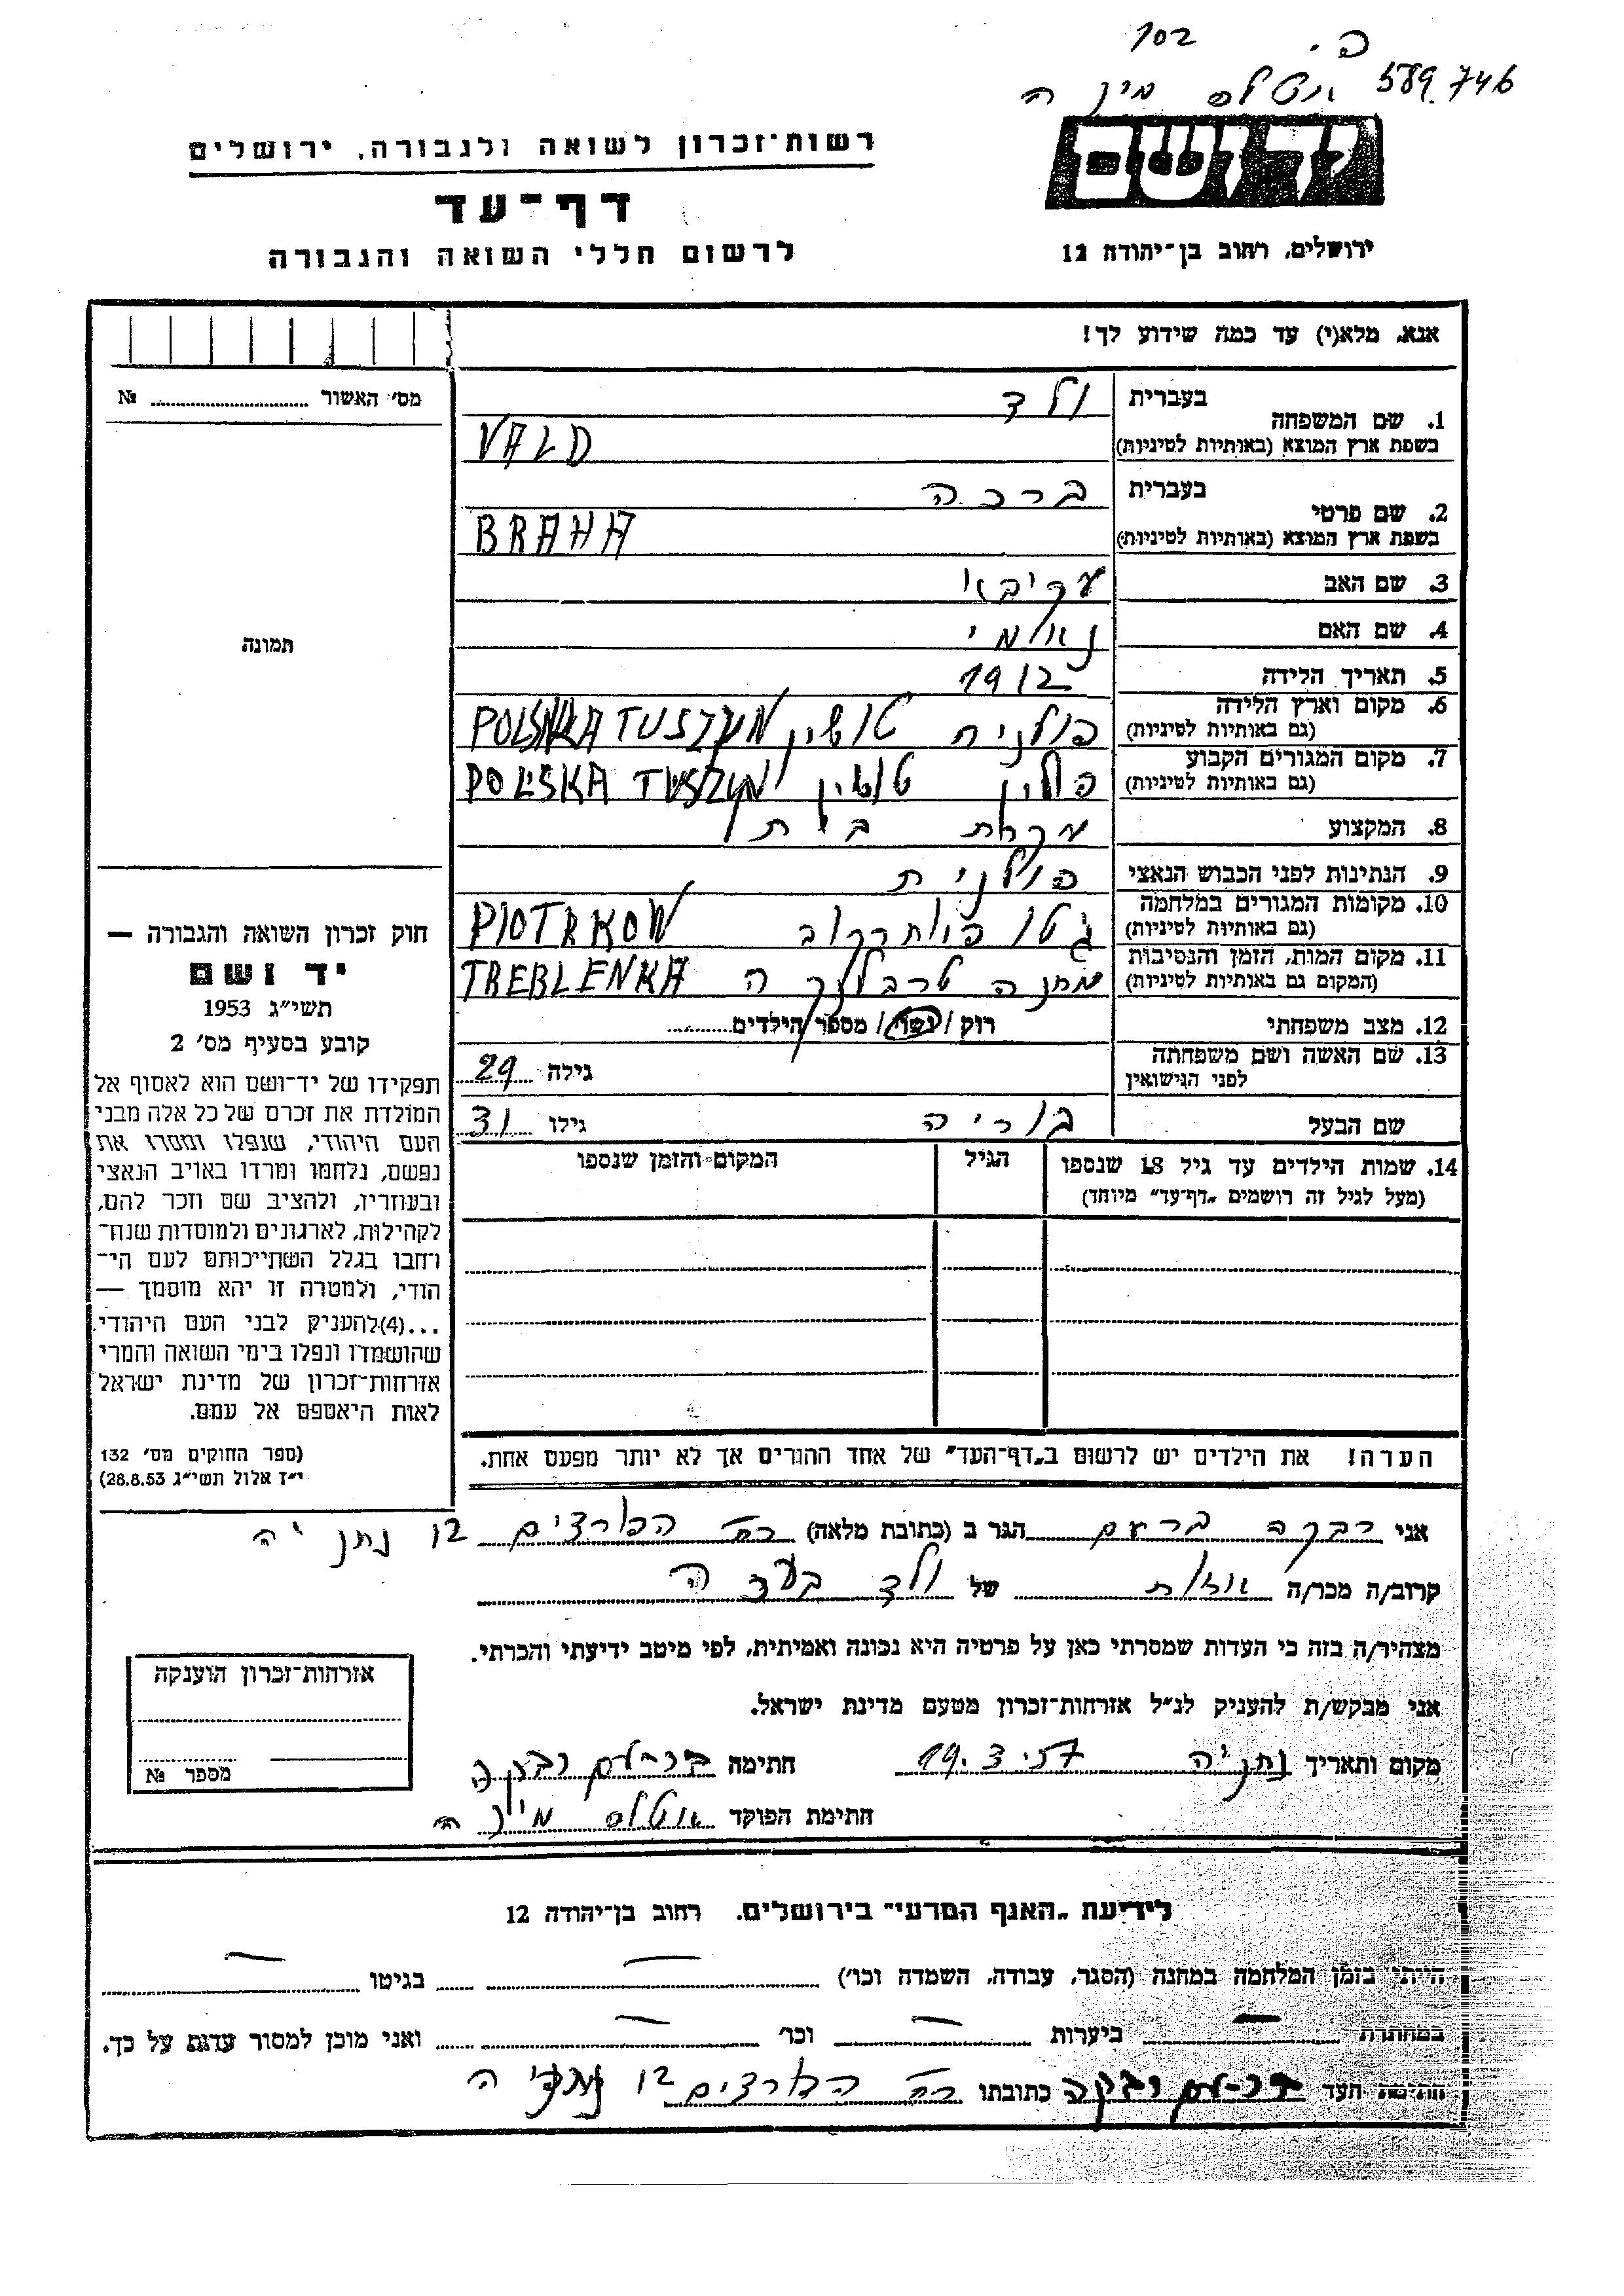 102 פ.
589.746
מינה
יד ושם
רשות-זכרון לשואה ולגבורה, ירושלים
דף-עד
לרשום חללי השואה והגבורה
ירושלים, רחוב בן-יהודה 12
אנא, מלא(י) עד כמה שידוע לך!
מס׳ האשור № 
1. שם המשפחה בעברית ולד
בשפת ארץ המוצא (באותיות לטיניות) VALD
2. שם פרטי בעברית ברכה
בשפת ארץ המוצא (באותיות לטיניות) BRAHA
3. שם האב עקיבא
4. שם האם נאומי
5. תאריך הלידה 1912
6. מקום וארץ הלידה פולניה טושין TUSZYN
(גם באותיות לטיניות)
7. מקום המגורים הקבוע פולין טושין POLSKA TUSZYN
(גם באותיות לטיניות)
8. המקצוע עקרת בית
9. הנתינות לפני הכבוש הנאצי פולנית
10. מקומות המגורים במלחמה גטו פיוטרקוב PIOTRKOW
(גם באותיות לטיניות)
11. מקום המות, הזמן והנסיבות מחנה טרבלנקה TREBLENKA
(המקום גם באותיות לטיניות)
12. מצב משפחתי רוק / נשוי / מספר הילדים
13. שם האשה ושם משפחתה לפני הנישואין גילה 29
שם הבעל גילו 31
14. שמות הילדים עד גיל 18 שנספו הגיל המקום והזמן שנספו
(מעל לגיל זה רושמים "דף-עד" מיוחד)
הערה! את הילדים יש לרשום ב"דף-העד" של אחד ההורים אך לא יותר מפעם אחת.
תמונה
חוק זכרון השואה והגבורה —
יד ושם
תשי״ג 1953
קובע בסעיף מס׳ 2
תפקידו של יד-ושם הוא לאסוף אל
המולדת את זכרם של כל אלה מבני
העם היהודי, שנפלו ומסרו את
נפשם, נלחמו ומרדו באויב הנאצי
ובעוזריו, ולהציב שם וזכר להם,
לקהילות, לארגונים ולמוסדות שנח-
רבו בגלל השתייכותם לעם הי-
הודי, ולמטרה זו יהא מוסמך —
...(4)להעניק לבני העם היהודי
שהושמדו ונפלו בימי השואה והמרי
אזרחות-זכרון של מדינת ישראל
לאות היאספם אל עמם.
(ספר החוקים מס׳ 132
י״ז אלול תשי״ג 28.8.53)
אני רבקה הגר ב (כתובת מלאה) רח׳ 12 נתניה
קרוב/ה מכר/ה אחות של ולד ברכה
מצהיר/ה בזה כי העדות שמסרתי כאן על פרטיה היא נכונה ואמיתית, לפי מיטב ידיעתי והכרתי.
אני מבקש/ת להעניק לנ״ל אזרחות-זכרון מטעם מדינת ישראל.
מקום ותאריך נתניה 19.3.57 חתימה רבקה
חתימת הפוקד מינה
אזרחות-זכרון הוענקה
מספר №
לידיעת "האגף המדעי" בירושלים. רחוב בן-יהודה 12
הייתי בזמן המלחמה במחנה (הסגר, עבודה, השמדה וכו׳) — בגיטו —
במחתרת — ביערות — וכו׳ — ואני מוכן למסור עדות על כך.
חתימת העד רבקה כתובתו רח׳ 12 נתניה